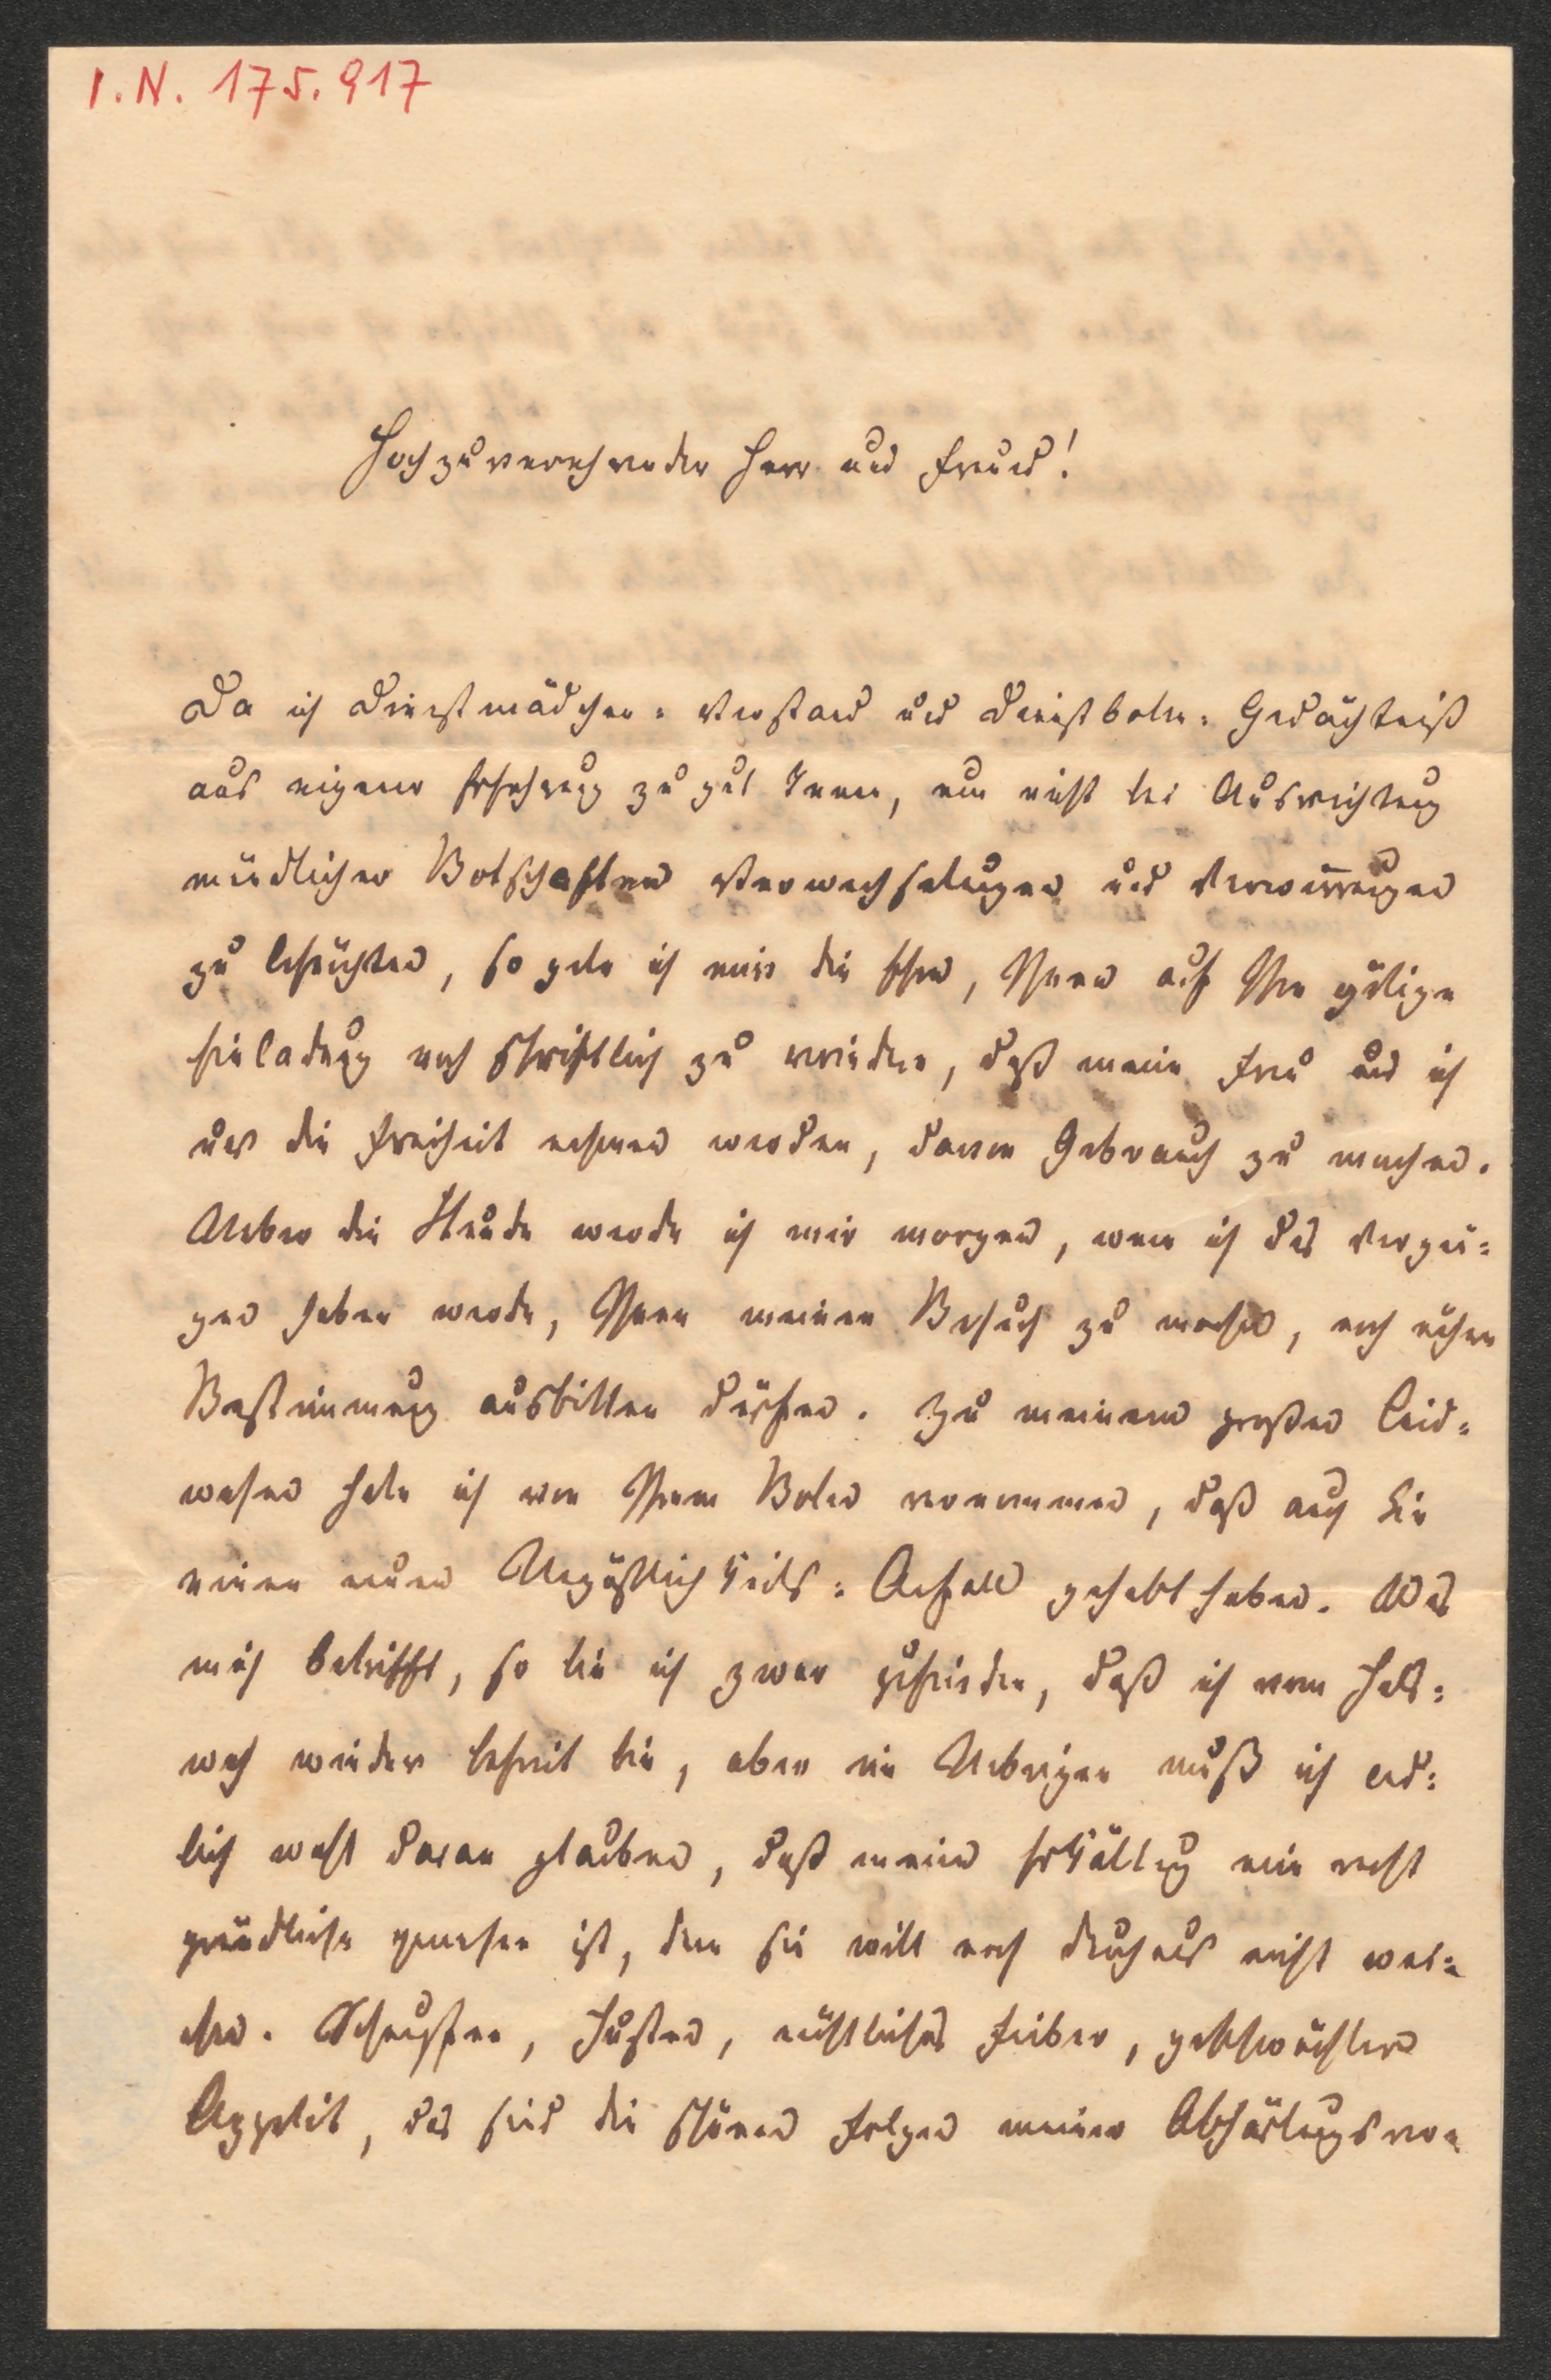 I.N. 175.917
Hochzuverehrender Herr und Freund!
Da ich Dienstmädchen-Verstand und Dienstboten-Gedächtniß
aus eigener Erfahrung zu gut kenne, um nicht bei Ausrichtung
mündlicher Botschaften Verwechselungen und Verwirrungen
zu befürchten, so gebe ich mir die Ehre, Ihnen auf Ihre gütige
Einladung noch schriftlich zu erwiedern, daß meine Frau und ich
uns die Freiheit nehmen werden, davon Gebrauch zu machen.
Ueber die Stunde werde ich mir morgen, wenn ich das Vergnü=
gen haben werde, Ihnen meinen Besuch zu machen, noch nähere
Bestimmung ausbitten dürfen. Zu meinem großen Leid=
wesen habe ich von Ihrem Boten vernommen, daß auch Sie
einen neuen Unpäßlichkeits=Anfall gehabt haben. Was
mich betrifft, so bin ich zwar zufrieden, daß ich vom Hals=
weh wieder befreit bin, aber im Uebrigen muß ich end=
lich wohl daran glauben, daß meine Erkältung eine recht
gründliche gewesen ist, denn sie will noch durchaus nicht wei=
chen. Schnupfen, Husten, nächtliches Fieber, geschwächter
Appetit, das sind die schönen Folgen meiner Abhärtungsver=